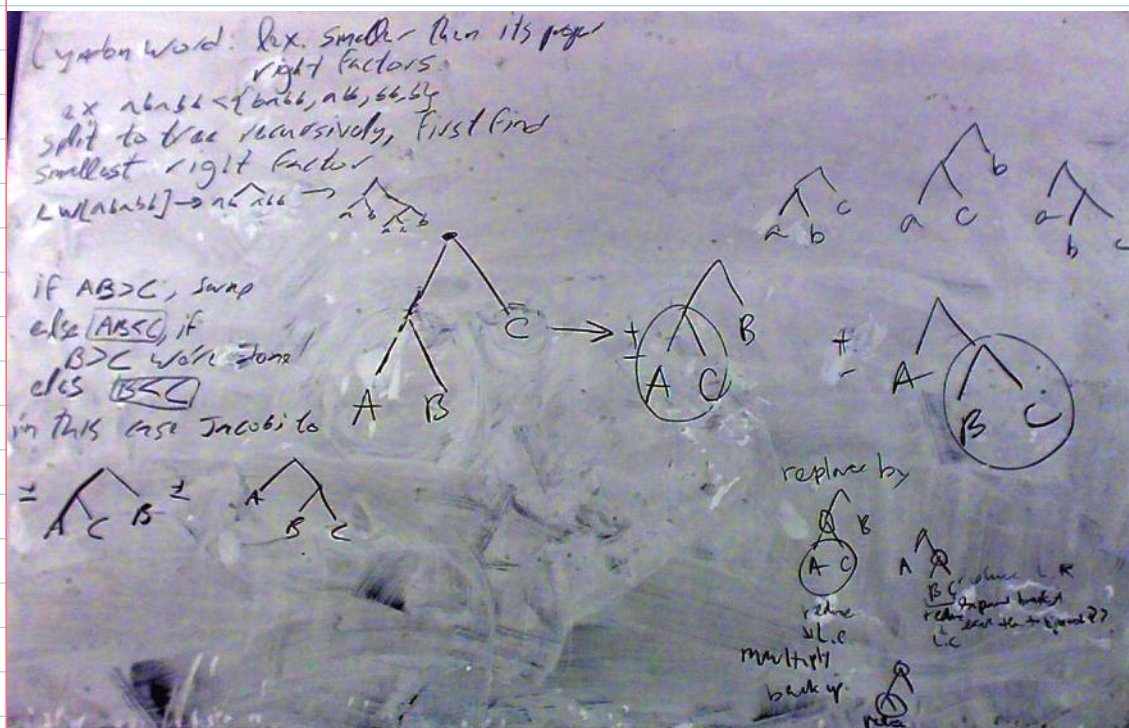 Lyndon Word: lex. smaller than its proper
right factors.
ex ababb < {babb, abb, bb, b}
split to tree recursively, first find
smallest right factor
LW[ababb] → ab abb →
a b a b b
a b c
a c b
a b c
if AB>C, swap
else AB<C, if
B>C we're done!
else B<C
in this case Jacobi to
A B C → ± A C B ± A B C
± A C B ± A B C
replace by
A C B
A B C
reduce
L.C
multiply
back up
reduce
L.C